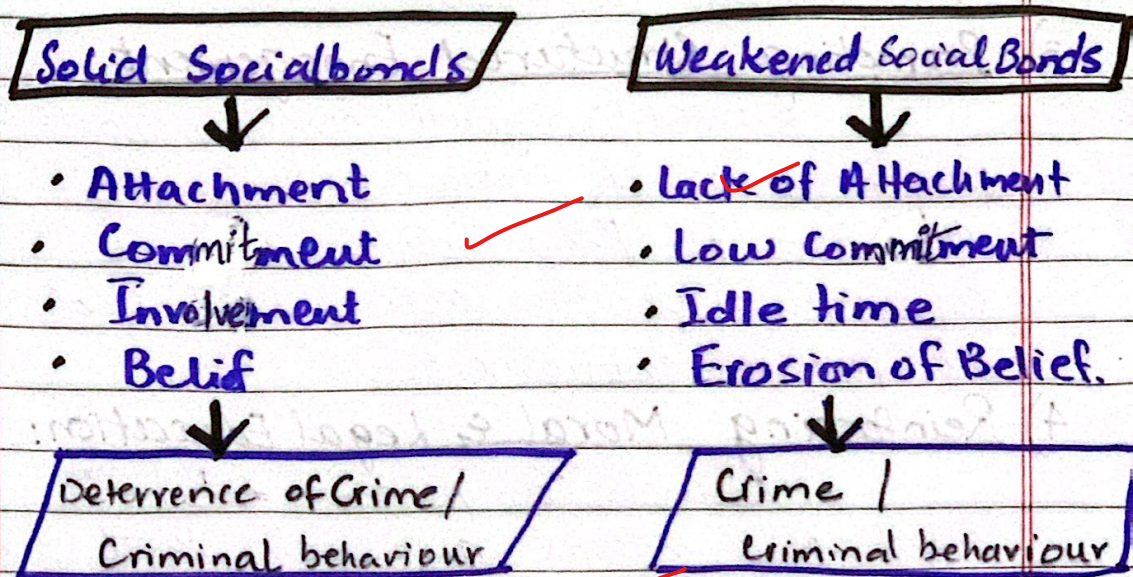 Solid Socialbonds
• Attachment
• Commitment
• Involvement
• Belief
Deterrence of Crime/
Criminal behaviour
Weakened Social Bonds
• Lack of Attachment
• Low Commitment
• Idle time
• Erosion of Belief.
Crime /
Criminal behaviour